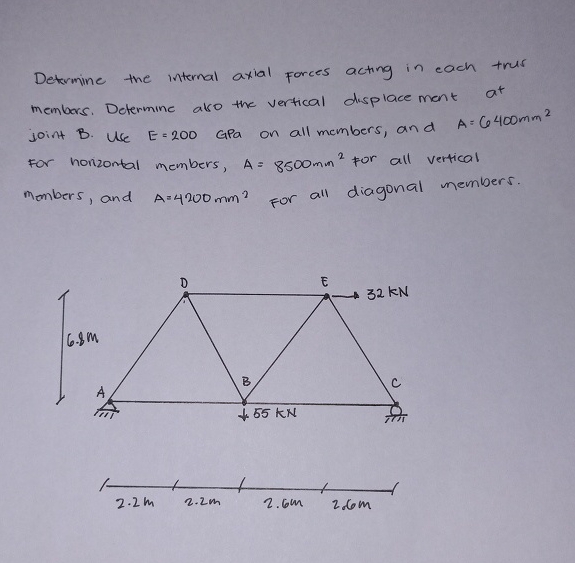 Determine the internal axial forces acting in each trus
members. Determine also the vertical displacement at
joint B. Use E = 200 GPa on all members, and A = 6400mm²
For horizontal members, A = 8500mm² for all vertical
members, and A=4900mm² For all diagonal members.
D
E
32 KN
6.8m
A
B
C
55 KN
2.2m 2.2m 2.6m 2.6m